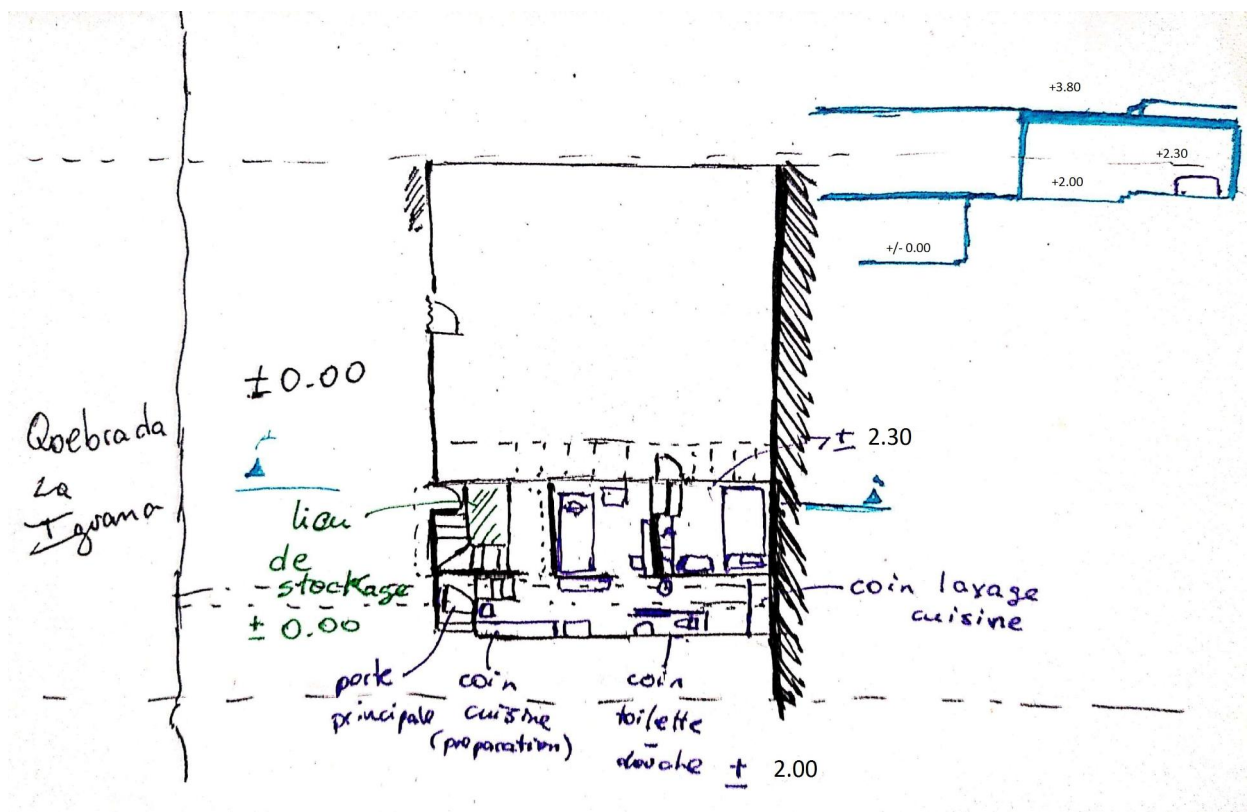 +3.80
+2.30
+2.00
+/- 0.00
± 0.00
Quebrada
La
Iguana
± 2.30
lieu
de
stockage
± 0.00
coin lavage
cuisine
porte
principale
coin
cuisine
(preparation)
coin
toilette
douche ± 2.00